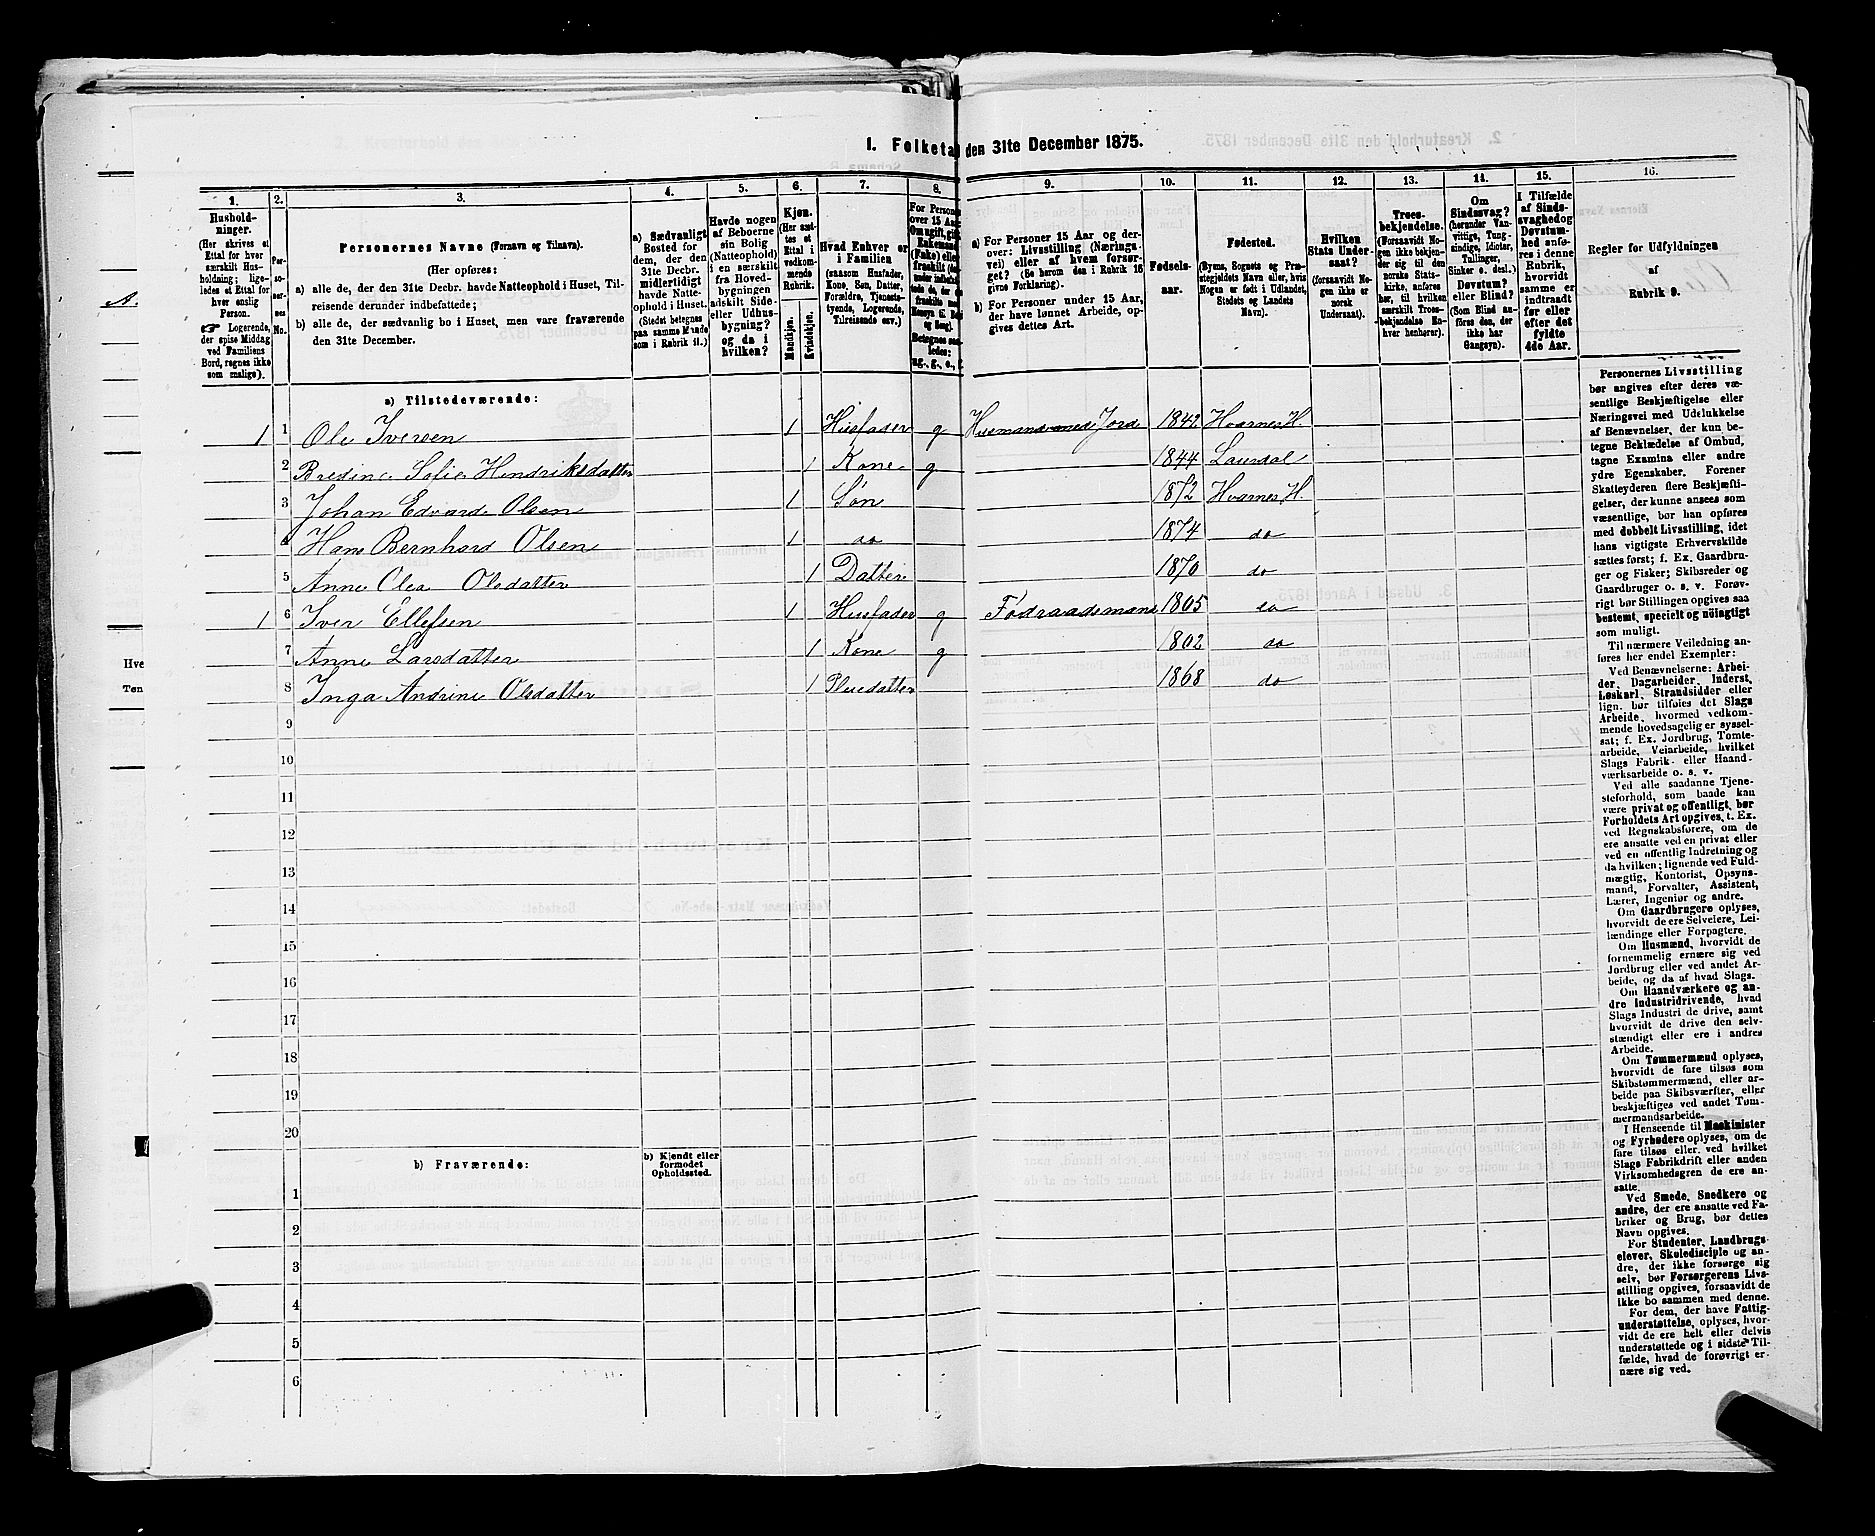 1. Folketa den 31te December 1875.
1. 2. 3. 4. 5. 6. 7. 8. 9. 10. 11. 12. 13. 14. 15. 16.
Hushold-
ninger.
(Her skrives et
Ettal for hver
særskilt Hus-
holdning; lige-
ledes et Ettal for
hver enslig
Person.
☞ Logerende,
der spise Middag
ved Familiens
Bord, regnes ikke
som enslige).
Personernes Navne (Fornavn og Tilnavn).
(Her opføres:
a) alle de, der den 31te Decbr. havde Natteophold i Huset, Til-
reisende derunder indbefattede;
b) alle de, der sædvanlig bo i Huset, men vare fraværende
den 31te December.
a) Sædvanligt
Bosted for
dem, der den
31te Decbr.
midlertidigt
havde Natte-
ophold i Huset.
(Stedet betegnes
paa samme Maade
som i Rubrik 11.)
Havde nogen
af Beboerne
sin Bolig
(Natteophold)
i en særskilt
fra Hoved-
bygningen
adskilt Side-
eller Udhus-
bygning?
og da i
hvilken?
Kjøn.
(Her sæt-
tes et
Ettal i
vedkom-
mende
Rubrik.
Mandkjøn.
Kvindekjøn.
Hvad Enhver er
i Familien
(saasom Husfader,
Kone, Søn, Datter,
Forældre, Tjeneste-
tyende, Logerende,
Tilreisende osv.)
a) For Personer 15 Aar og der-
over: Livsstilling (Nærings-
vei) eller af hvem forsør-
get? (Se herom den i Rubrik 16
givne Forklaring).
b) For Personer under 15 Aar,
der have lønnet Arbeide, op-
gives dettes Art.
Fødsels-
aar.
Fødested.
(Byens, Sognets og Præ-
stegjeldets Navn eller, hvis
Nogen er født i Udlandet,
Stedets og Landets
Navn).
Hvilken
Stats Under-
saat?
(forsaavidt No-
gen ikke er
norsk
Undersaat).
Troes-
bekjendelse.
(Forsaavidt No-
gen ikke bekjen-
der sig til den
norske Stats-
kirke, anføres
her, til hvilken
særskilt Troes-
bekjendelse En-
hver henhører).
Om
Sindssvag?
(herunder Van-
vittige, Tung-
sindige, Idioter,
Tullinger,
Sinker o. desl.)
Døvstum?
eller Blind?
(Som Blind an-
føres den, der
ikke har
Gangsyn).
I Tilfælde
af Sinds-
svaghed og
Døvstum-
hed anfø-
res i denne
Rubrik,
hvorvidt
samme er
indtraadt
før eller
efter det
fyldte
4de Aar.
Regler for Udfyldningen
af
Rubrik 9.
a) Tilstedeværende:
1 1 Ole Iversen 1 Husfader g Husmand med Jord 1842 Hvarnes H.
2 Bredine Sofie Hendriksdatter 1 Kone g 1844 Laurdal
3 Johan Edvard Olsen 1 Søn 1872 Hvarnes H.
4 Hans Bernhard Olsen 1 do 1874 do
5 Anne Olea Olsdatter 1 Datter 1870 do
1 6 Iver Ellefsen 1 Husfader g Födraadsmand 1805 do
7 Anne Larsdatter 1 Kone g 1802 do
8 Inga Andrine Olsdatter 1 Pleiedatter 1868 do
9
10
11
12
13
14
15
16
17
18
19
20
b) Fraværende:
b) Kjendt eller
formodet
Opholdssted.
1
2
3
4
5
6
Personernes Livsstilling
bør angives efter deres væ-
sentlige Beskjæftigelse eller
Næringsvei med Udelukkelse
af Benævnelser, der kun be-
tegne Beklædelse af Ombud,
tagne Examina eller andre
ydre Egenskaber. Forener
Skatteyderen flere Beskjæfti-
gelser, der kunne ansees som
væsentlige, bør han opføres
med dobbelt Livsstilling, idet
hans vigtigste Erhvervskilde
sættes først; f. Ex. Gaardbru-
ger og Fisker; Skibsreder og
Gaardbruger o. s. v. Forøv-
rigt bør Stillingen opgives saa
bestemt, specielt og nøiagtigt
som muligt.
Til nærmere Veiledning an-
føres her endel Exempler:
Ved Benævnelserne: Arbei-
der, Dagarbeider, Inderst,
Løskarl, Strandsidder eller
lign. bør tilføies det Slags
Arbeide, hvormed vedkom-
mende hovedsagelig er syssel-
sat; f. Ex. Jordbrug, Tomte-
arbeide, Veiarbeide, hvilket
Slags Fabrik- eller Haand-
værksarbeide o. s. v.
Ved alle saadanne Tjene-
steforhold, som baade kan
være privat og offentligt, bør
Forholdets Art opgives, t. Ex.
ved Regnskabsførere, om de
ere ansatte ved en privat eller
ved en offentlig Indretning og
da hvilken; lignende ved Fuld-
mægtig, Kontorist, Opsyns-
mand, Forvalter, Assistent,
Lærer, Ingeniør og andre.
Om Gaardbrugere oplyses,
hvorvidt de ere Selveiere, Lei-
lændinge eller Forpagtere.
Om Husmænd, hvorvidt de
fornemmelig ernære sig ved
Jordbrug eller ved andet Ar-
beide, og da af hvad Slags.
Om Haandværkere og an-
dre Industridrivende, hvad
Slags Industri de drive, samt
hvorvidt de drive den selv-
stændigt eller ere i andres
Arbeide.
Om Tømmermænd oplyses,
hvorvidt de fare tilsøs som
Skibstømmermænd, eller ar-
beide paa Skibsværfter, eller
beskjæftiges ved andet Tøm-
mermandsarbeide.
I Henseende til Maskinister
og Fyrbødere oplyses, om de
fare tilsøs eller ved hvilket
Slags Fabrikdrift eller anden
Virksomhedsgren de ere an-
satte.
Ved Smede, Snedkere og
andre, der ere ansatte ved Fa-
briker og Brug, bør dettes
Navn opgives.
For Studenter, Landbrugs-
elever, Skoledisciple og an-
dre, der ikke forsørge sig
selv, bør Forsørgerens Livs-
stilling opgives, forsaavidt de
ikke bo sammen med denne.
For dem, der have Fattig-
understøttelse, oplyses, hvor-
vidt de ere helt eller delvis
understøttede og i sidste Til-
fælde, hvad de forøvrigt er-
nære sig ved.